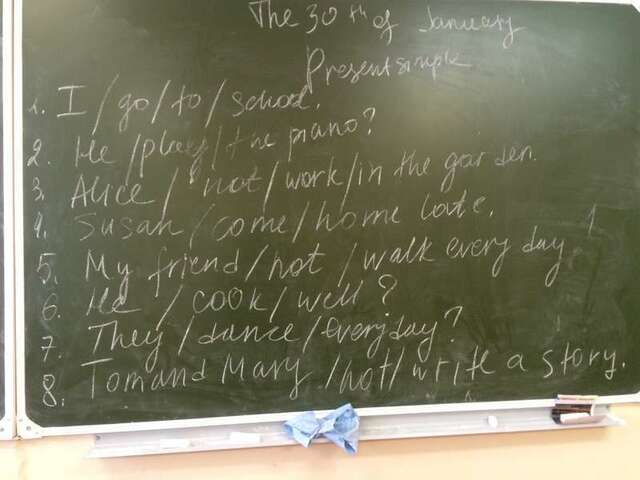 The 30th of January
Present simple
1. I / go / to / school.
2. He / play / the piano?
3. Alice / not / work / in the garden.
4. Susan / come / home late.
5. My friend / not / walk every day
6. He / cook / well?
7. They / dance / everyday?
8. Tom and Mary / not / write a story.